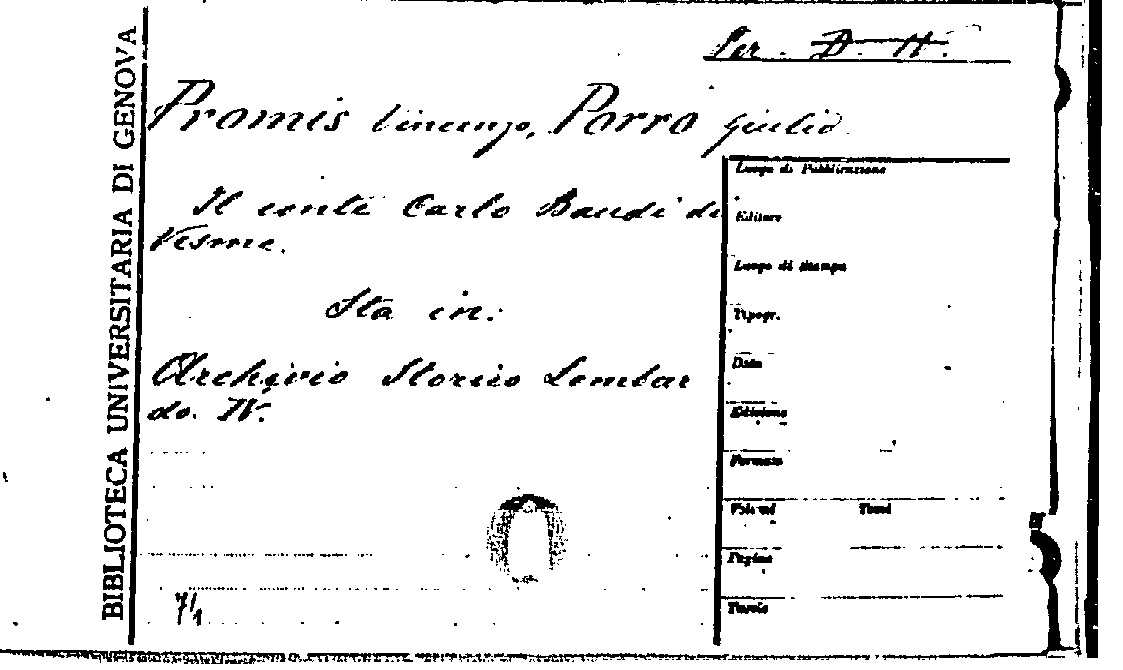 BIBLIOTECA UNIVERSITARIA DI GENOVA
Per. D. H.
Promis Vincenzo, Porro Giulio
Il conte Carlo Baudi di
Vesme.
Sta in:
Archivio Storico Lombar
do. IV.
7/1
Luogo di Pubblicazione
Editore
Luogo di stampa
Tipogr.
Data
Edizione
Formato
Volumi Tomi
Pagine
Tavole